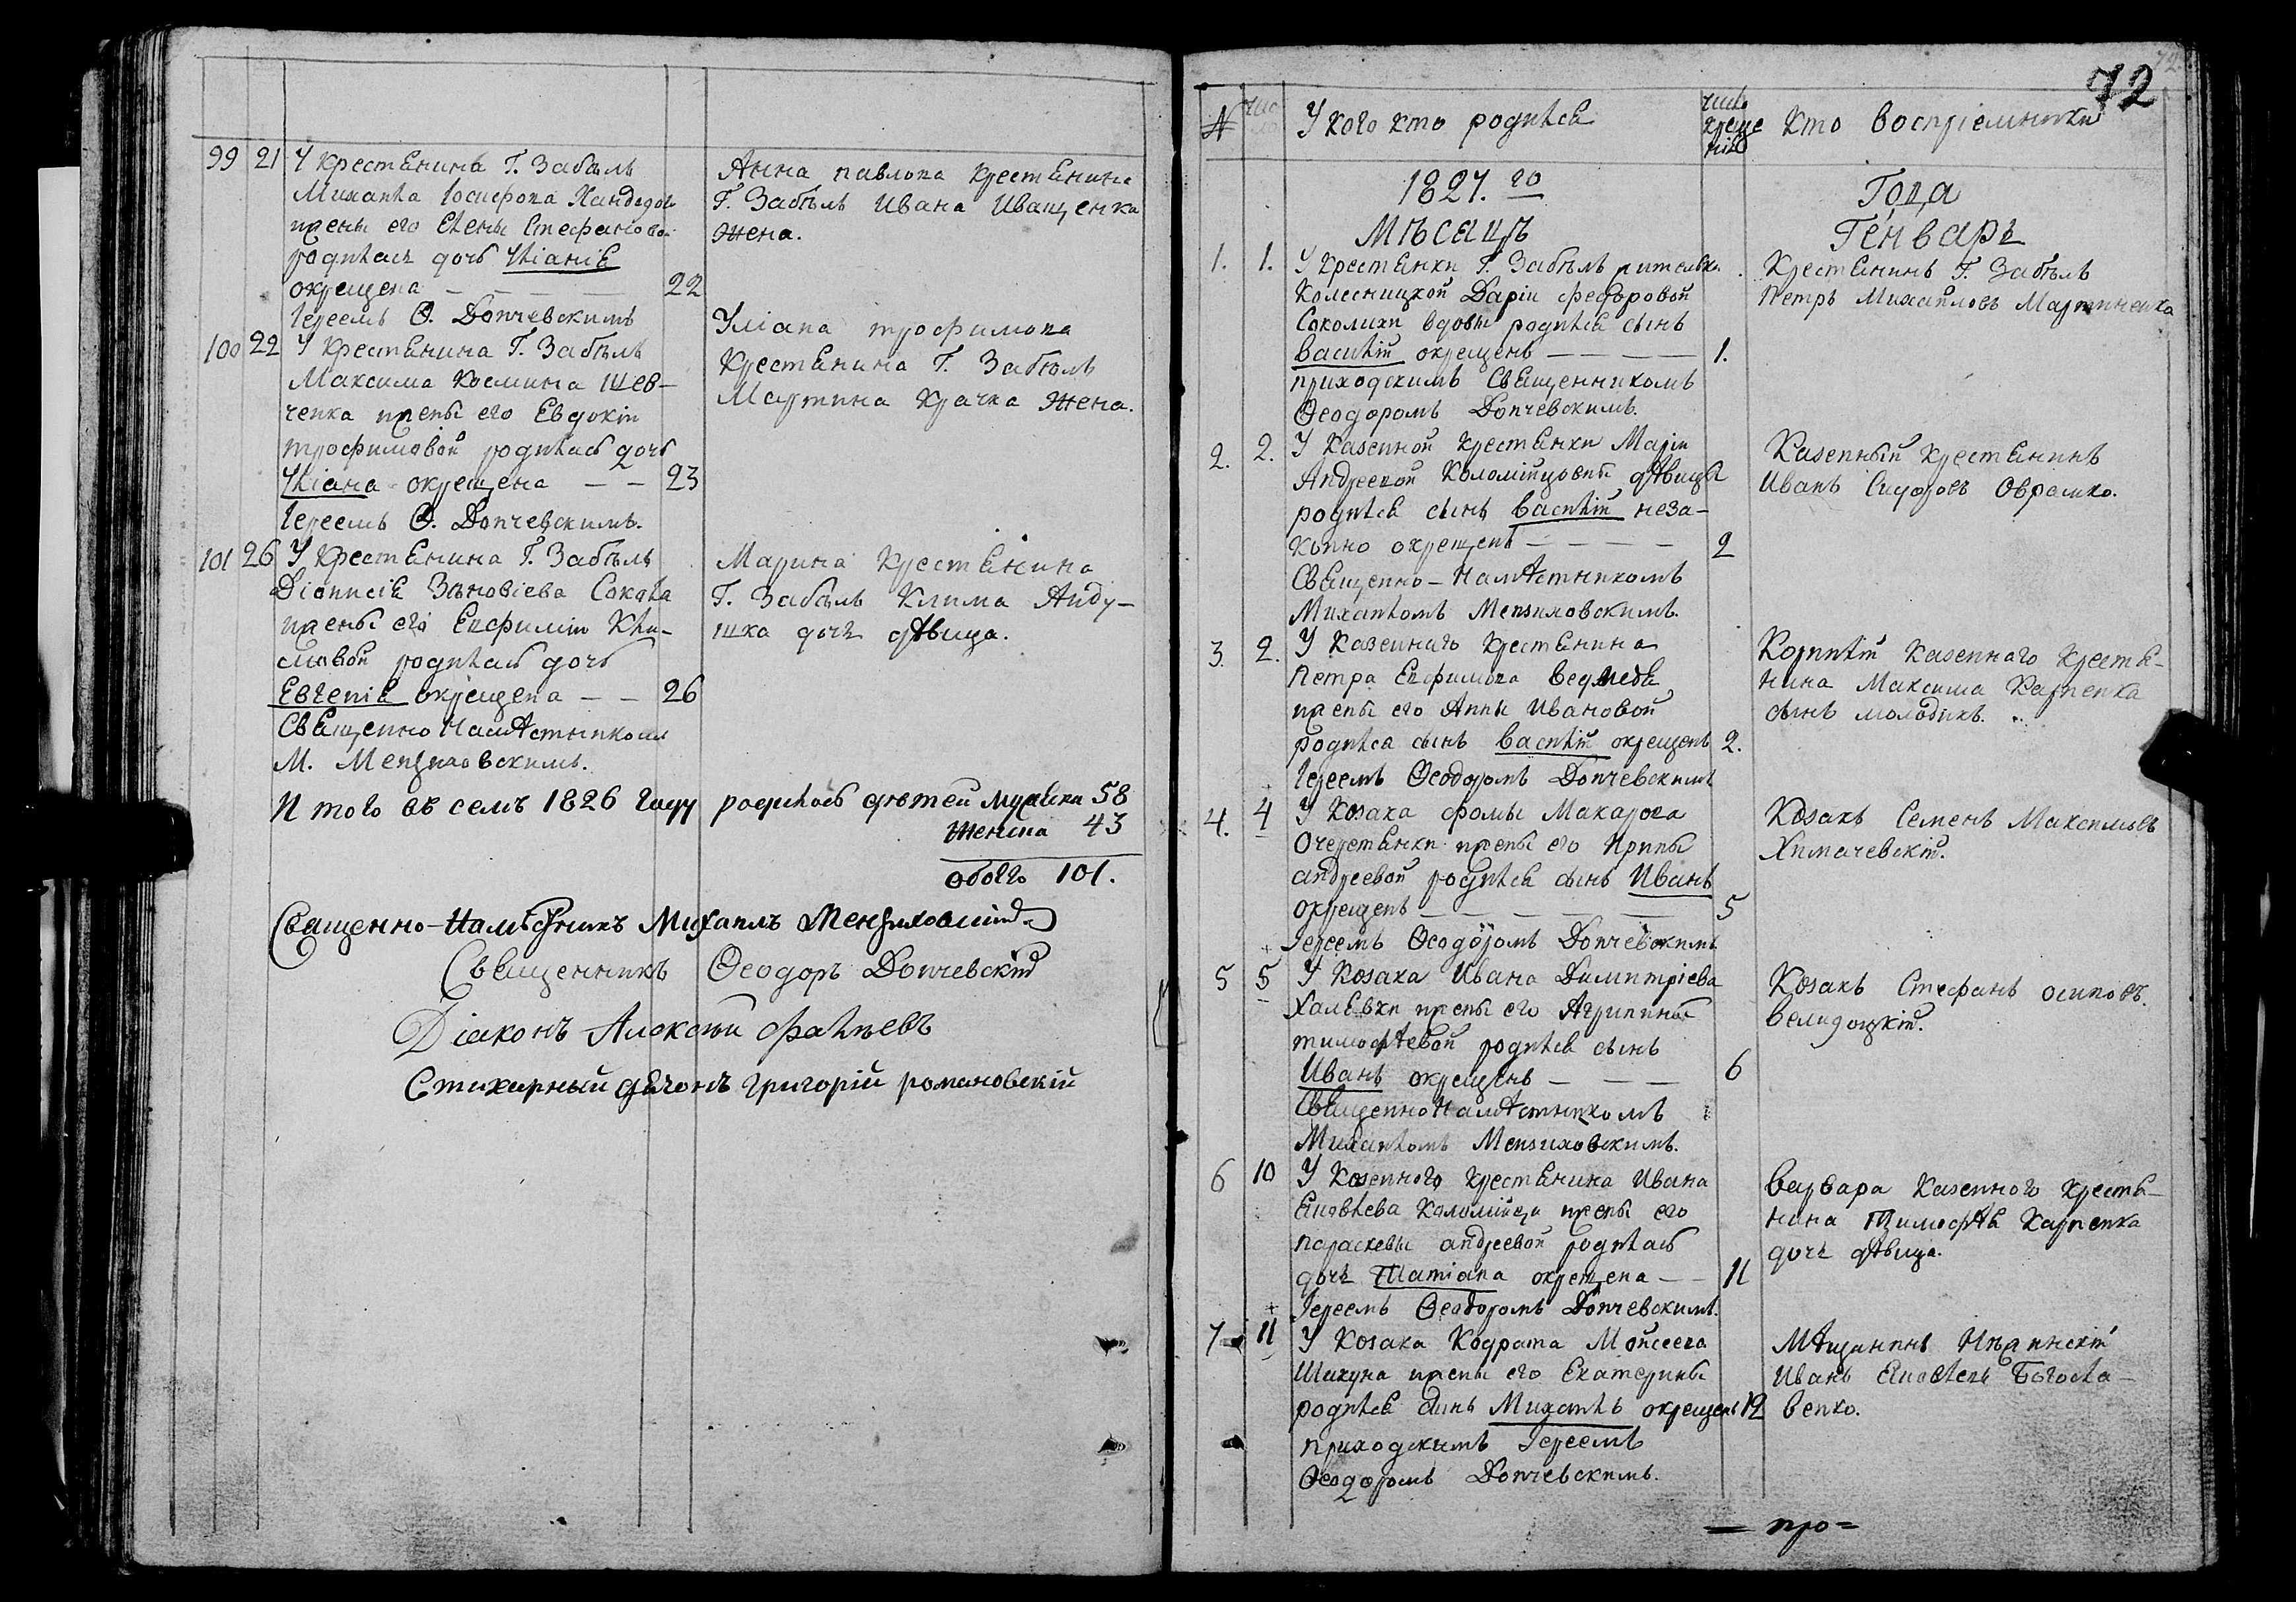 99 21 У крестянина Г. Забѣлъ
Михаила Іосифова
жены его Елены Стефановой
родилась дочь Уліанія
окрещена — — — — 22
Іереемъ Ѳ. Допчевскимъ
Анна павлова крестянина
Г. Забѣлъ Ивана Иващенка
жена.
100 22 У крестянина Г. Забѣлъ
Максима Космина Шев-
ченка жены его Евдокіи
трофимовой родилась дочь
Уліана окрещена — — 23
Іереемъ Ѳ. Допчевскимъ.
Уліана трофимова
крестянина Г. Забѣлъ
Мартина Крачка жена.
101 26 У крестянина Г. Забѣлъ
Діонисія Зѣновіева Сокола
жены его Евфиміи Кли-
мовой родилась дочь
Евгенія окрещена — — 26
Священно Намѣстникомъ
М. Мензиховскимъ.
Марина крестянина
Г. Забѣлъ Клима Анду-
шка дочь дѣвица.
И того въ семъ 1826 году родилось дѣтей мужеска 58
женска 43
обоего 101.
Священно-Намѣстникъ Михаилъ Мензиховскій
Священникъ Ѳеодоръ Допчевскій
Діаконъ Алексѣй Фалѣевъ
Стихарный дячокъ григорій романовскій
72
N число У кого кто родился число крещенія Кто воспріемники
1827. го Года
Мѣсяцъ Генварь
1. 1. У крестянки Г. Забѣлъ
Колесницкой Даріи федоровой
Соколихи вдовы родился сынъ
василій окрещенъ — — — — 1.
приходскимъ Священникомъ
Ѳеодоромъ Допчевскимъ.
Крестянинъ Г. Забѣлъ
Петръ Михайловъ Мартиненко
2. 2. У казенной крестянки Маріи
Андреевой Коломійцовны дѣвицы
родился сынъ василій неза-
конно окрещенъ — — — — 2
Священно-Намѣстникомъ
Михаиломъ Мензиховскимъ.
Казенный крестянинъ
Иванъ Сидоровъ Оврамко.
3. 2. У казеннаго крестянина
Петра Евфимова ведмедя
жены его Анны Ивановой
родился сынъ василій окрещенъ 2.
Іереемъ Ѳеодоромъ Допчевскимъ
Корнилій казенного крестя-
нина Максима Карпенка
сынъ молодикъ.
4. 4 У Козака фомы Макарова
Очеретянки жены его Ирины
андреевой родился сынъ Иванъ
окрещенъ — — — — — 5
Іереемъ Ѳеодоромъ Допчевскимъ
Козакъ Семенъ Максимовъ
Химачевскій.
5 5 У Козака Ивана Димитріева
Халевки жены его Агрипины
тимофѣевой родился сынъ
Иванъ окрещенъ — — — 6
Священно Намѣстникомъ
Михаиломъ Мензиховскимъ.
Козакъ Стефанъ осиповъ
6 10 У Казенного крестянина Ивана
Яковлева Коломійца жены его
параскевы андреевой родилась
дочь Татіана окрещена — — 11
Іереемъ Ѳеодоромъ Допчевскимъ.
варвара казенного крестя-
нина Тимофѣя Карпенка
дочь дѣвица.
7 11 У Козака Кодрата Мойсеева
Шикуна жены его Екатерины
родился сынъ Михаилъ окрещенъ 12
приходскимъ Іереемъ
Ѳеодоромъ Допчевскимъ.
Мѣщанинъ Нѣжинскій
Иванъ Яковлевъ Богосла-
венко.
= про =